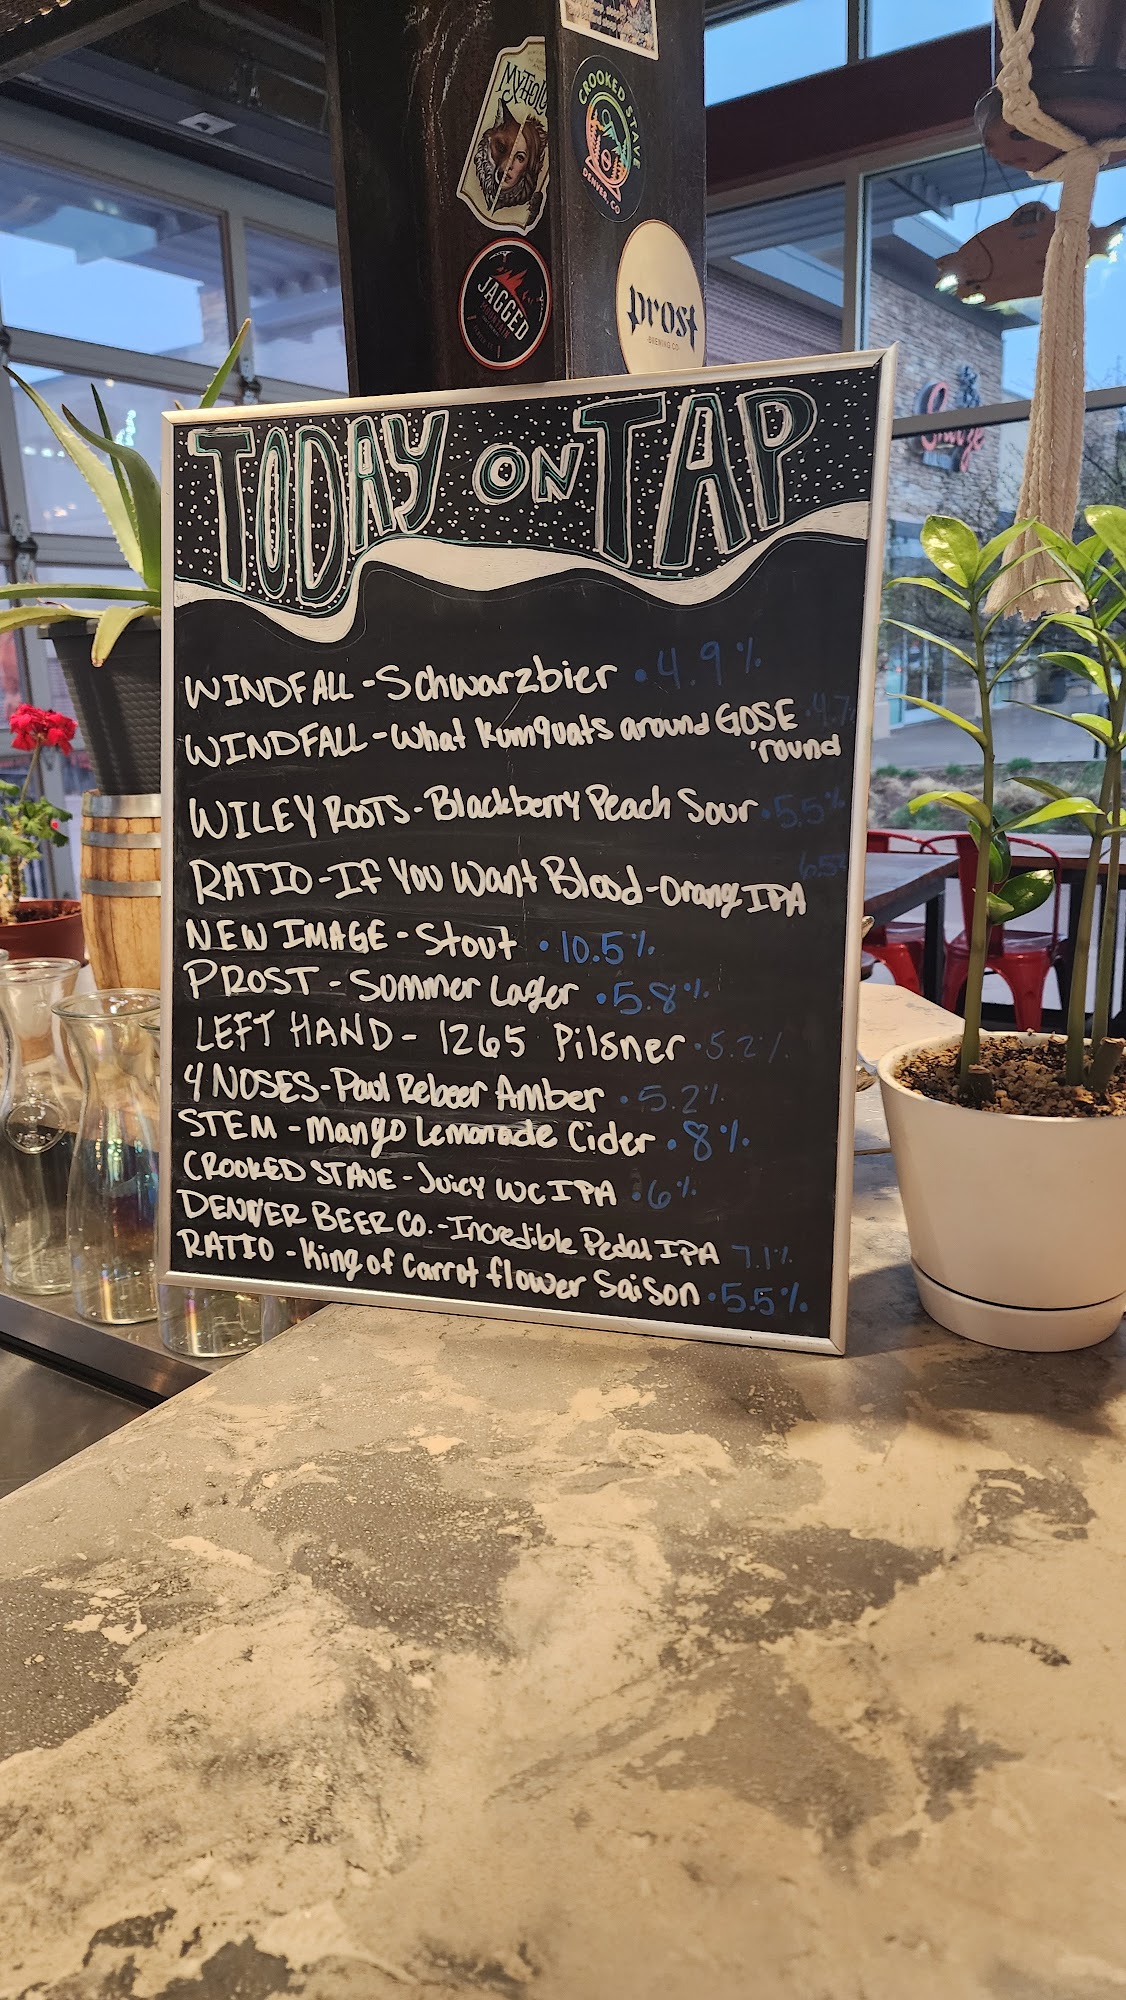 MYTHOLO
CROOKED STAVE
DENVER, CO
JAGGED
MOUNTAIN
prost
BREWING CO
TODAY ON TAP
WINDFALL - Schwarzbier • 4.9%
WINDFALL - What Kumquats around GOSE 4.7%
'round
WILEY ROOTS - Blackberry Peach Sour • 5.5%
RATIO - If You Want Blood - Orang IPA 6.5%
NEW IMAGE - Stout • 10.5%
PROST - Summer Lager • 5.8%
LEFT HAND - 1265 Pilsner • 5.2%
4 NOSES - Paul Rebeer Amber • 5.2%
STEM - Mango Lemonade Cider • 8%
CROOKED STAVE - Juicy WC IPA • 6%
DENVER BEER CO. - Incredible Pedal IPA 7.1%
RATIO - King of Carrot flower Saison • 5.5%